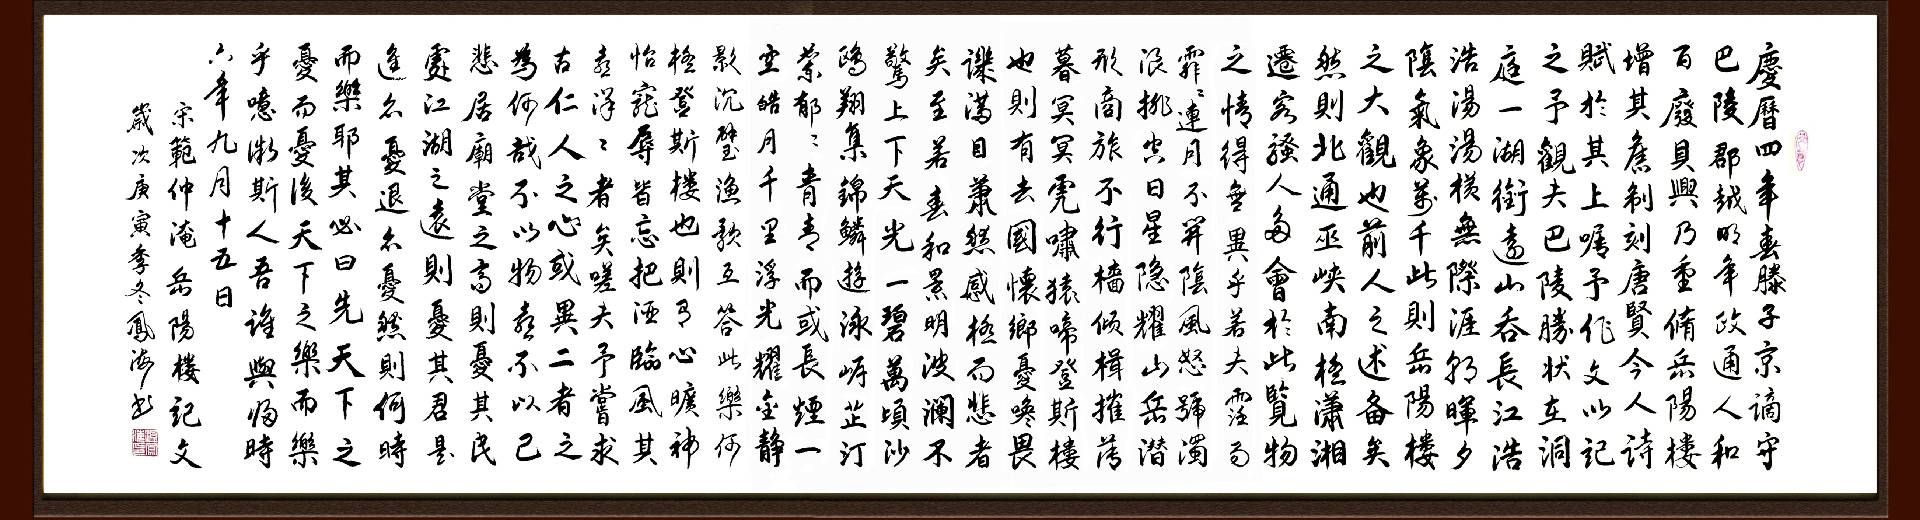 慶曆四年春滕子京謫守
巴陵郡越明年政通人和
百廢具興乃重脩岳陽樓
增其舊制刻唐賢今人詩
賦於其上囑予作文以記
之予觀夫巴陵勝狀在洞
庭一湖銜遠山吞長江浩
浩湯湯橫無際涯朝暉夕
陰氣象萬千此則岳陽樓
之大觀也前人之述备矣
然則北通巫峽南極瀟湘
遷客騷人多會於此覽物
之情得無異乎若夫霪雨
霏〻連月不開陰風怒號濁
浪排空日星隐耀山岳潜
形商旅不行檣倾楫摧薄
暮冥冥虎嘯猿啼登斯樓
也則有去國懷鄉憂讒畏
譏滿目萧然感極而悲者
矣至若春和景明波澜不
驚上下天光一碧萬頃沙
鷗翔集錦鱗遊泳岸芷汀
蘭郁〻青青而或長煙一
空皓月千里浮光耀金静
影沉璧漁歌互答此樂何
極登斯樓也則有心曠神
怡寵辱皆忘把酒臨風其
喜洋〻者矣嗟夫予嘗求
古仁人之心或異二者之
為何哉不以物喜不以己
悲居廟堂之高則憂其民
處江湖之遠則憂其君是
進亦憂退亦憂然則何時
而樂耶其必曰先天下之
憂而憂後天下之樂而樂
乎噫微斯人吾誰與歸時
六年九月十五日
宋範仲淹岳陽樓記文
歲次庚寅季冬鳳海書